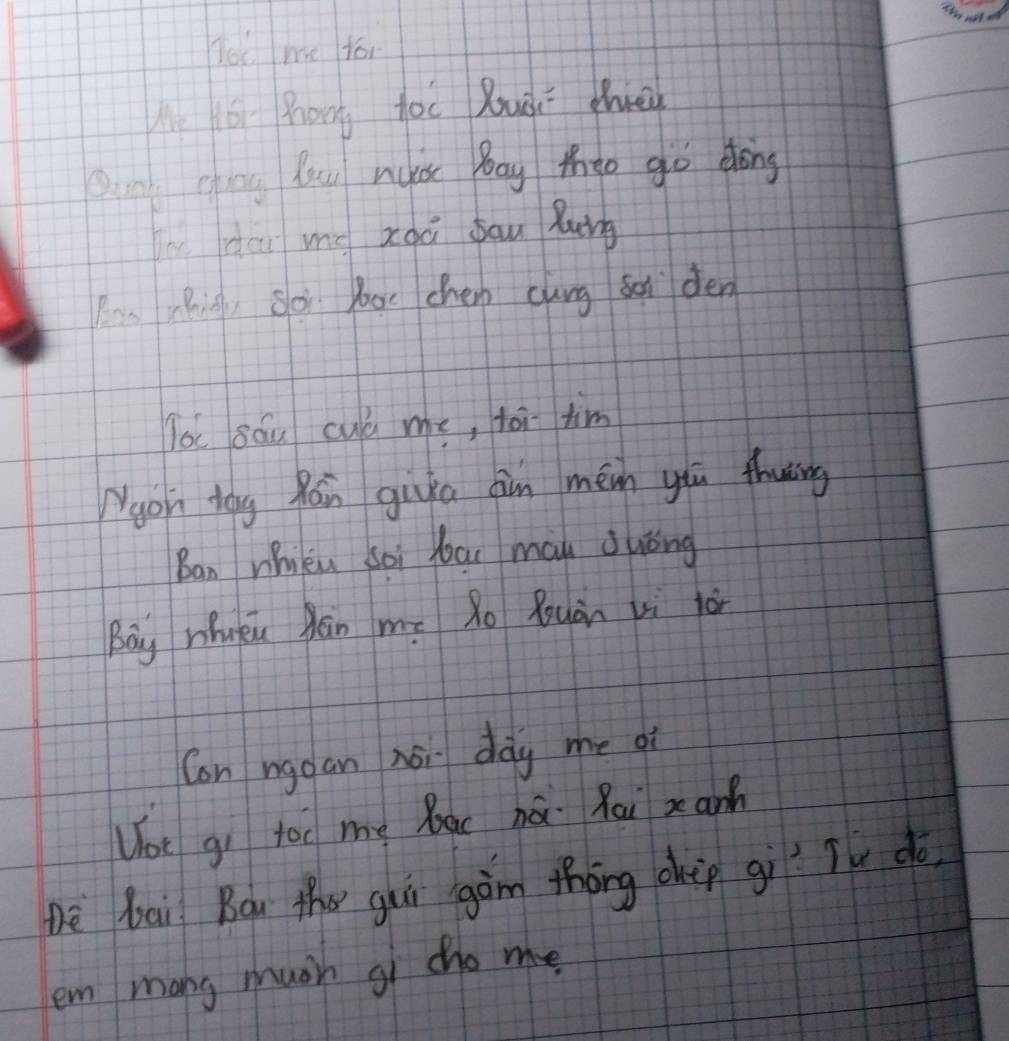 Tóc mẹ tôi
Mẹ tôi hong tóc buổi chiều
Quay quay bụi nước bay theo gió đồng
Tóc dài mẹ xoã sau lưng
Bao nhiêu sợi bạc chen cùng sợi đen
Tóc sâu của mẹ, tôi tìm
Ngón tay lần giữa ấm mềm yêu thương
Bao nhiêu sợi bạc màu sương
Bấy nhiêu lần mẹ lo buồn vì tôi
Con ngoan rồi đấy mẹ ơi
Ước gì tóc mẹ bạc rồi lại xanh
Đề bài: Bài thơ gửi gắm thông điệp gì? Từ đó,
em mong muốn gì cho mẹ